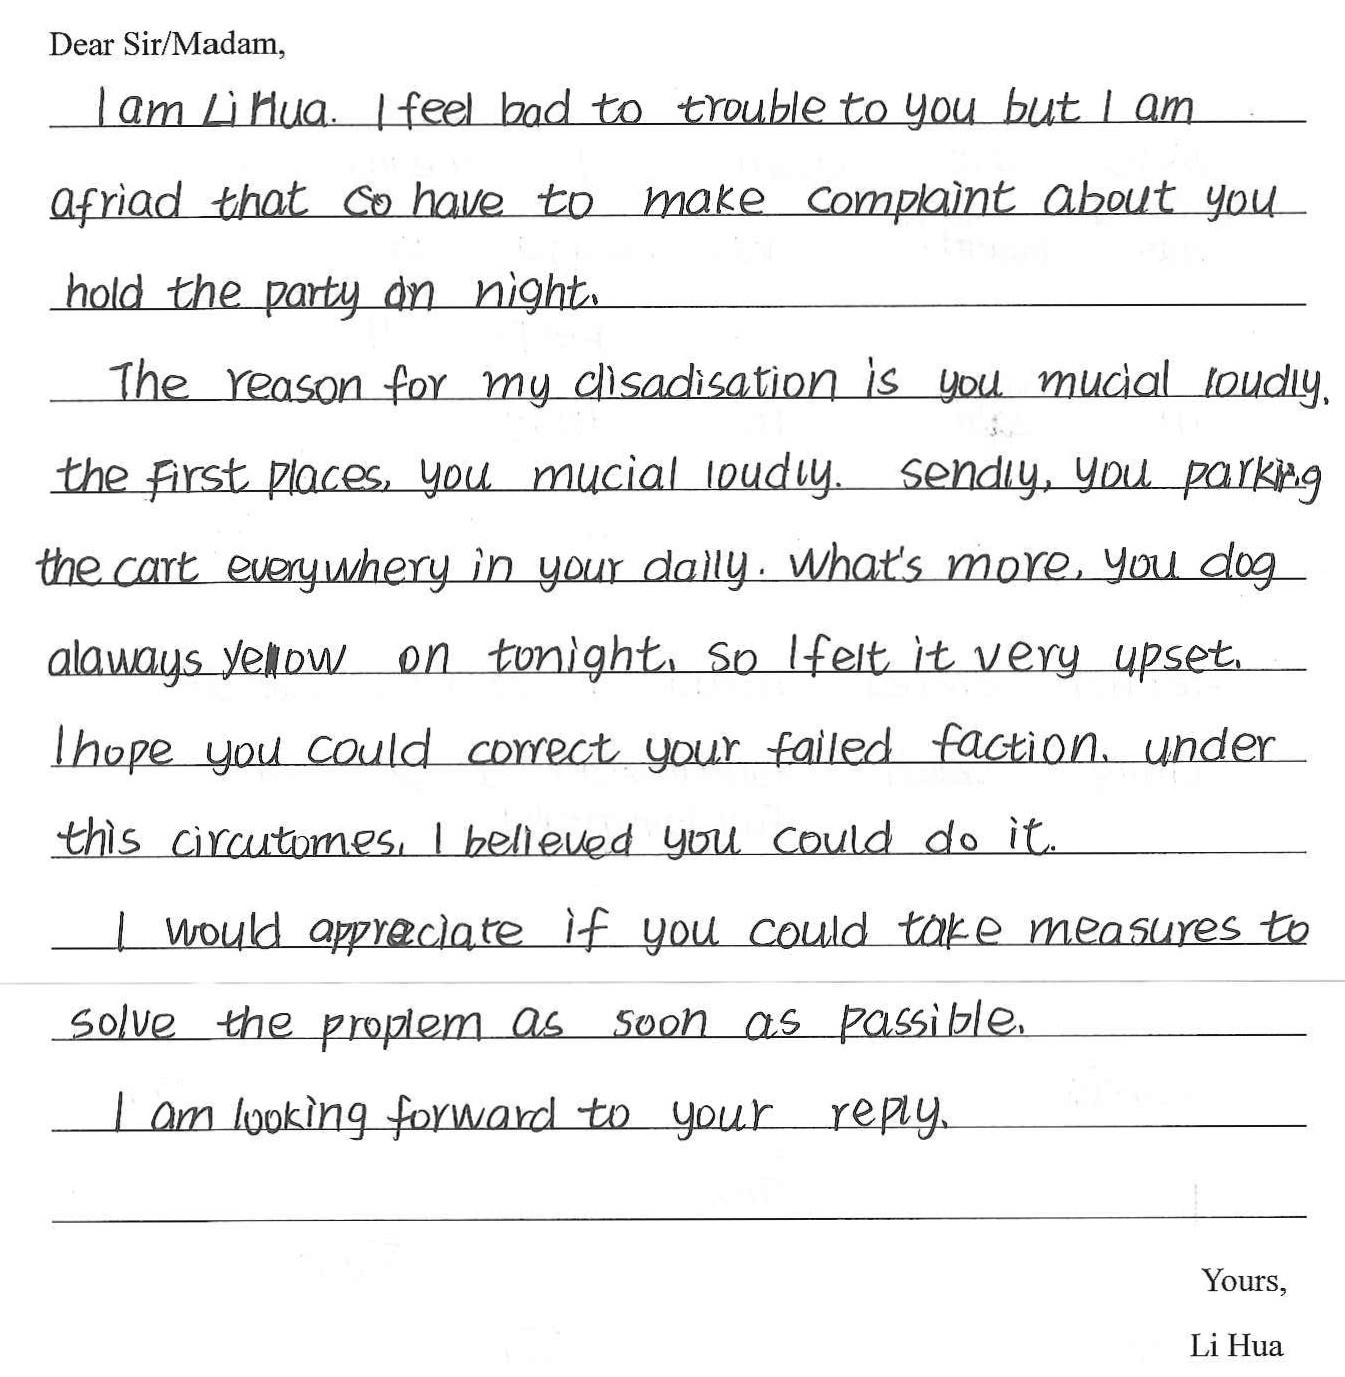 Dear Sir/Madam,
I am Li Hua. I feel bad to trouble to you but I am
afriad that so have to make complaint about you
hold the party on night.
The reason for my disadisation is you mucial loudly.
the first places, you mucial loudly. sendly, you parking
the cart everywhery in your daily. What's more, you dog
alaways yellow on tonight. so I felt it very upset.
I hope you could correct your failed faction. under
this circutomes, I believed you could do it.
I would appreciate if you could take measures to
solve the proplem as soon as passible.
I am looking forward to your reply.
Yours,
Li Hua